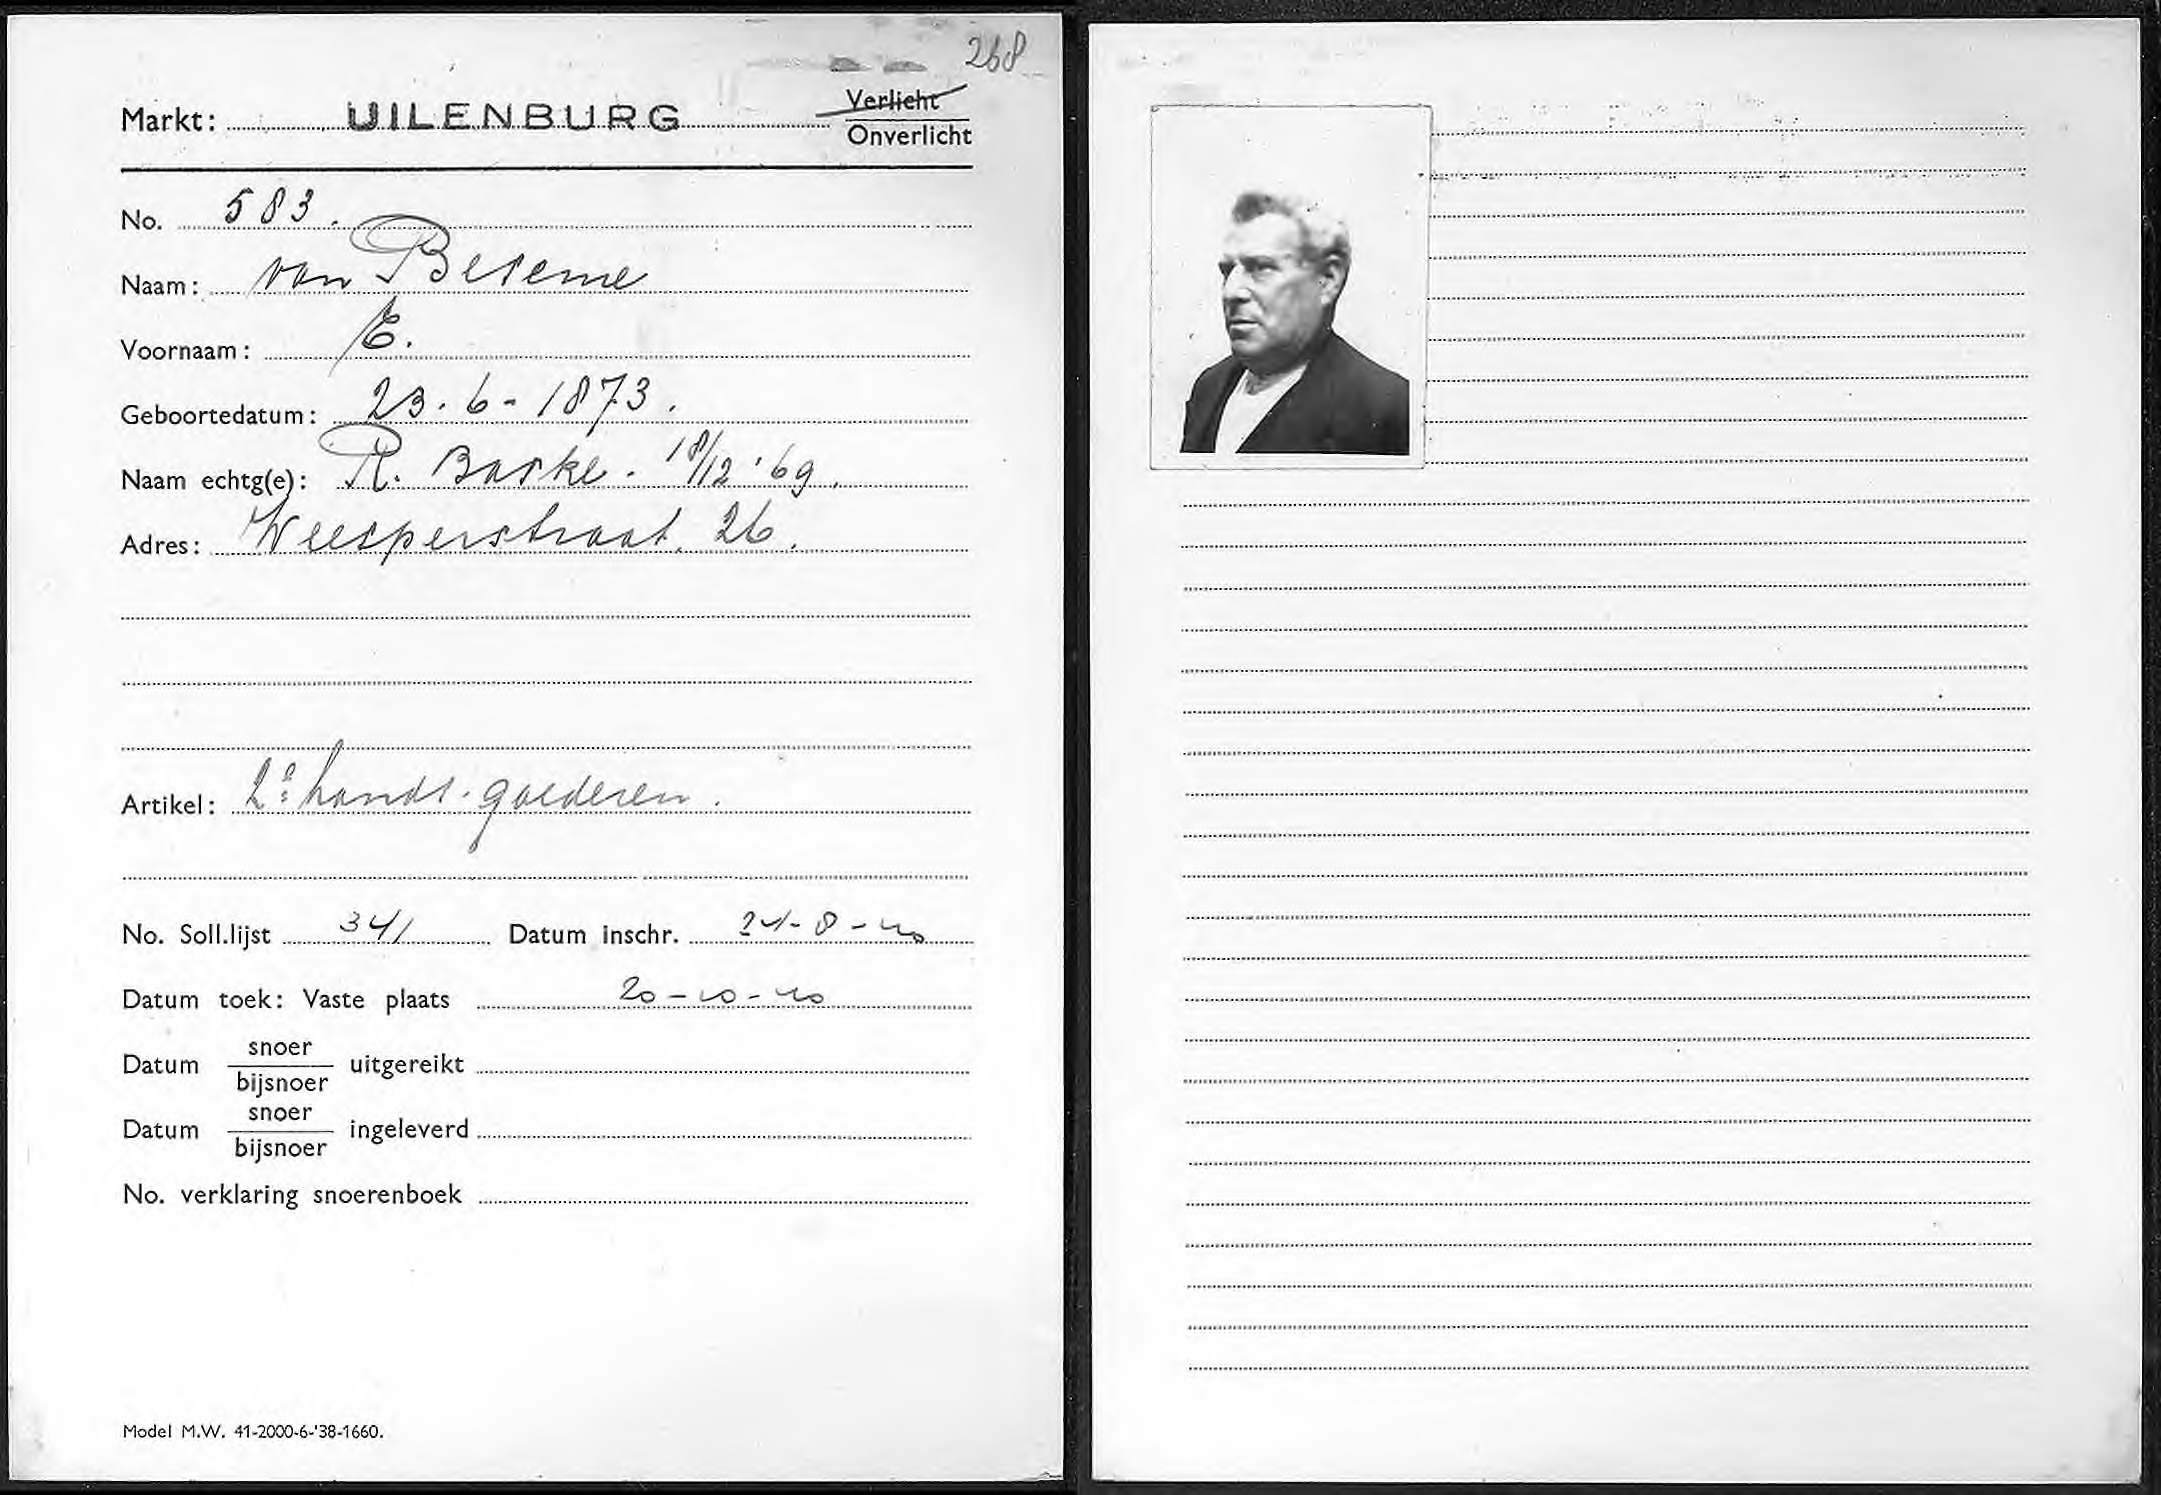 268
Markt: UILENBURG Verlicht
Onverlicht
No. 583.
Naam: van Beseme
Voornaam: E.
Geboortedatum: 23.6-1873.
Naam echtg(e): R. Barke. 18/12 '69.
Adres: Weesperstraat. 26.
Artikel: 2e hands-goederen.
No. Soll.lijst 341 Datum inschr. 24-8-40
Datum toek: Vaste plaats 20-10-40
Datum snoer/bijsnoer uitgereikt
Datum snoer/bijsnoer ingeleverd
No. verklaring snoerenboek
Model M.W. 41-2000-6-'38-1660.